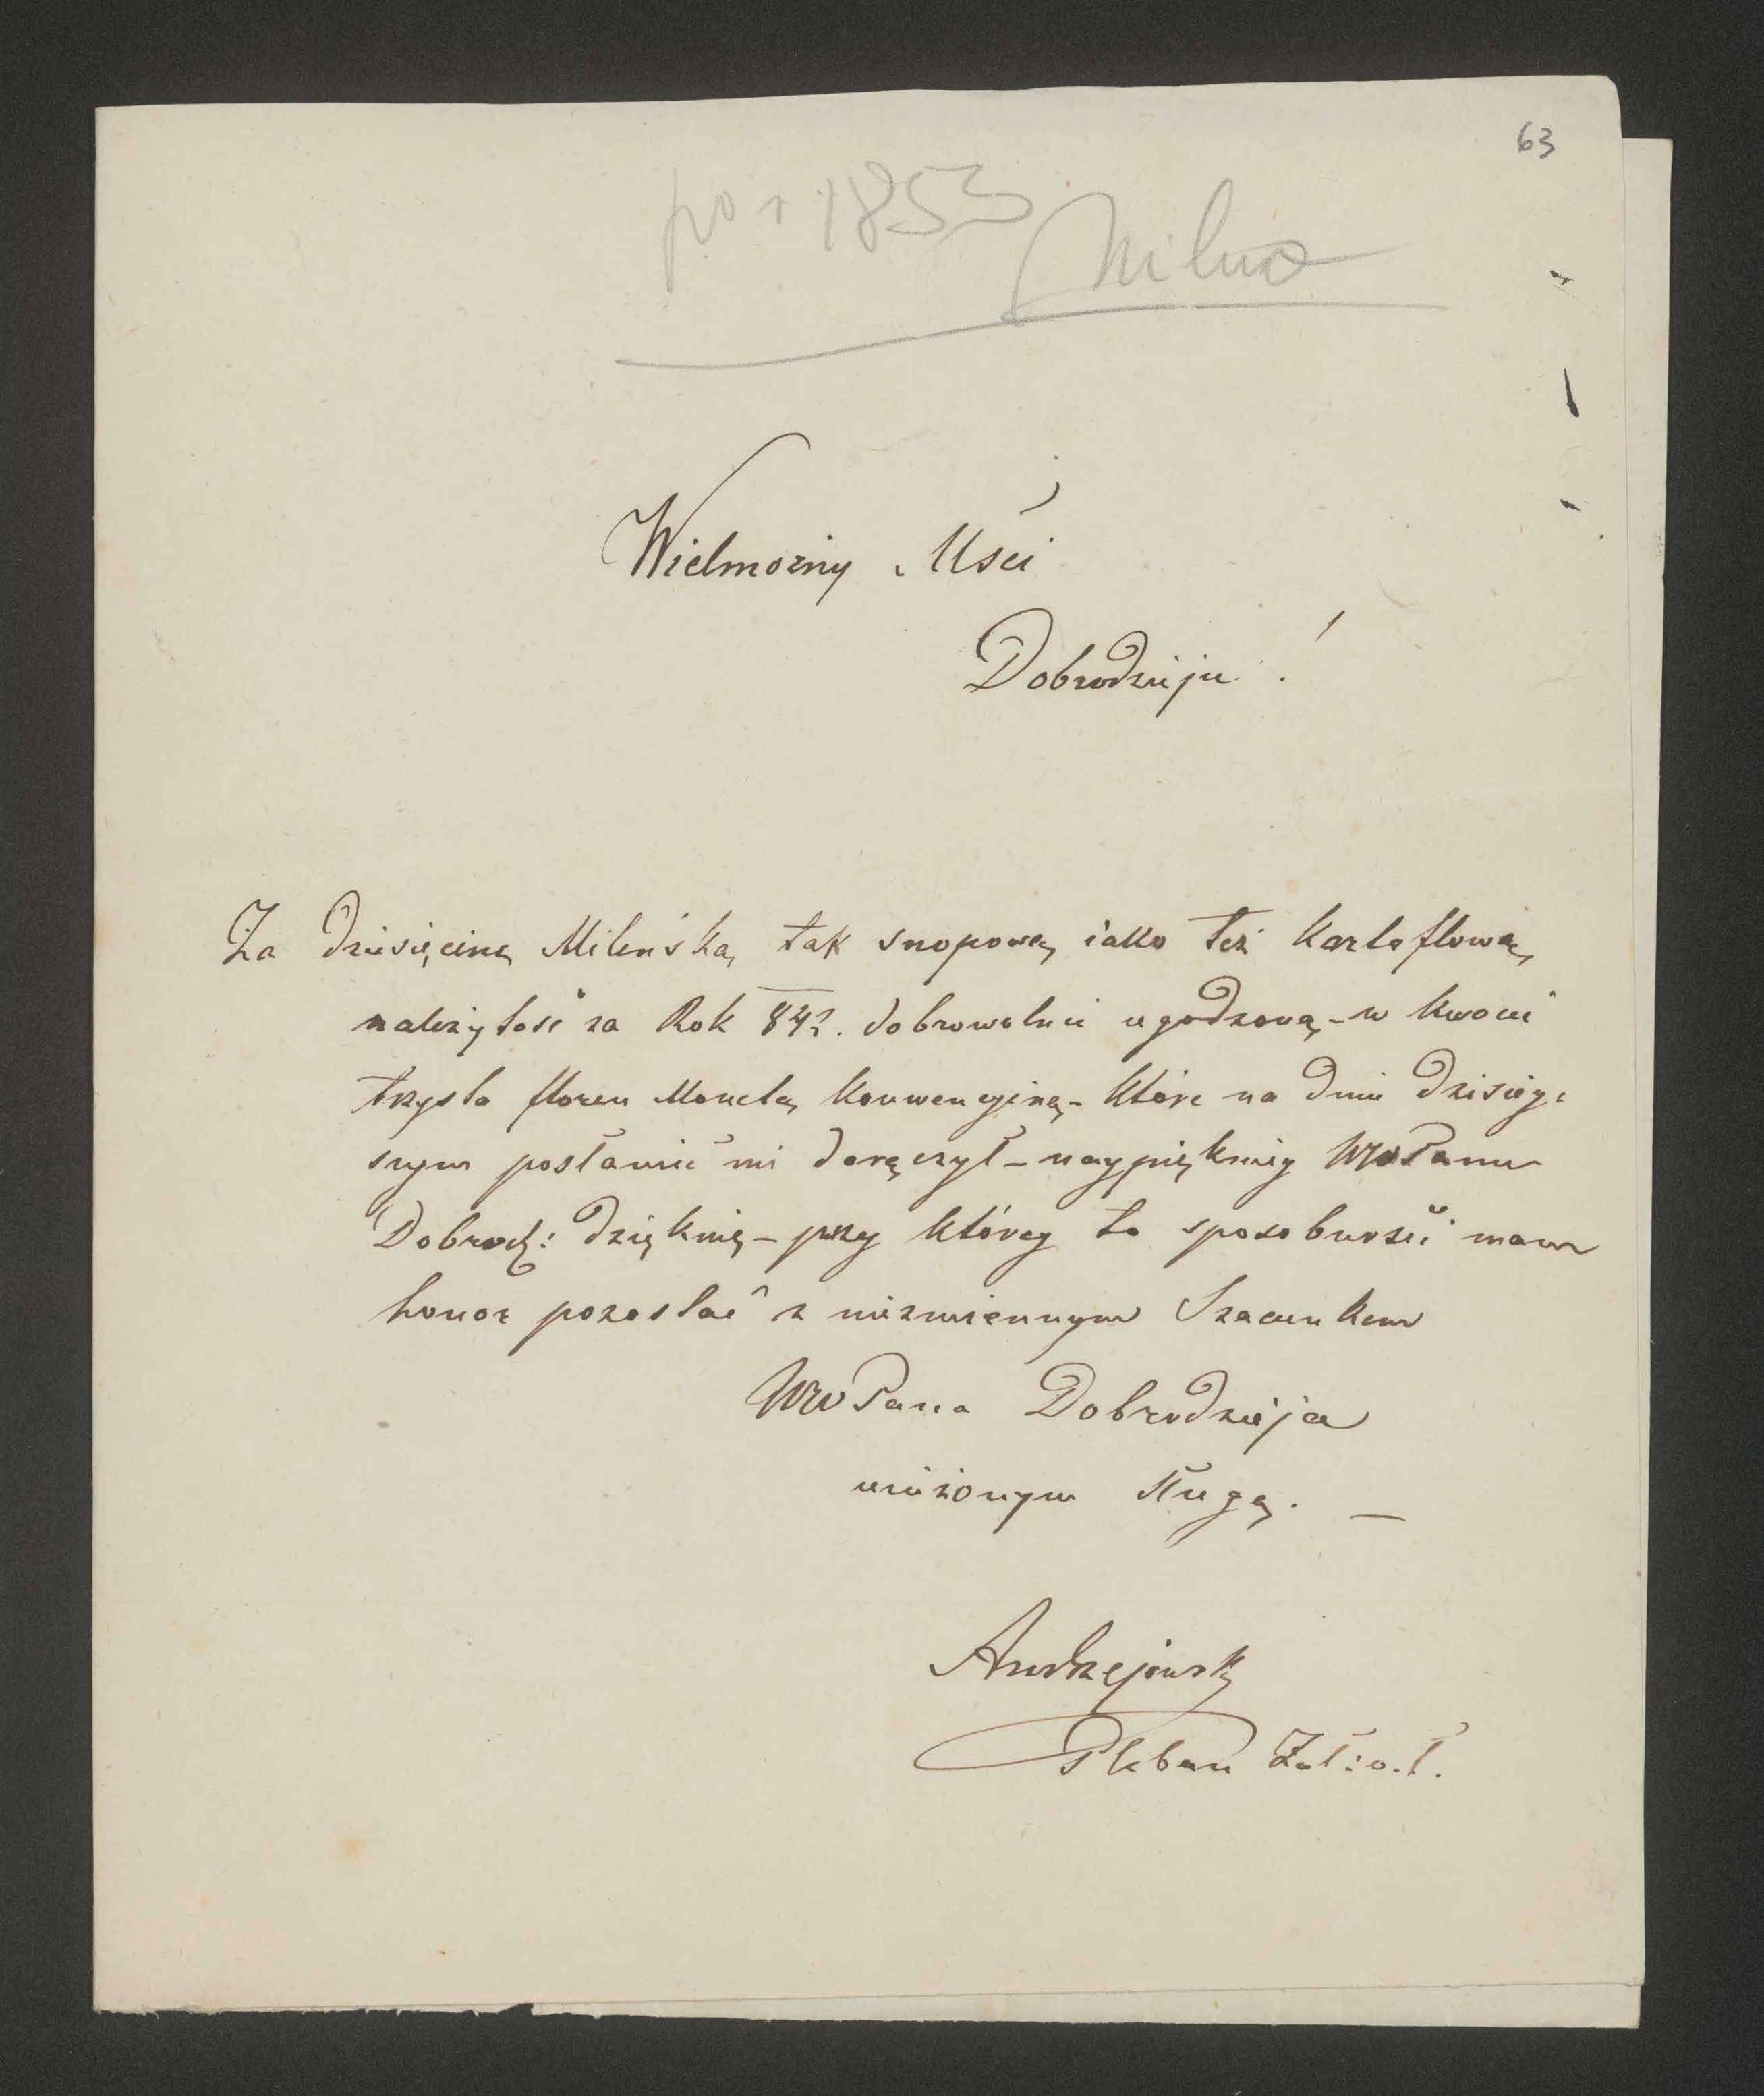 63
po r 1853
Milno
Wielmożny Mści
Dobrodzieju!
Za Dziesięcinę Mileńską tak snopową iako też kartoflową
należytość za Rok 842. dobrowolnie ugodzoną - w kwocie
trzysta floren Monetą konwencyjną - które na dniu dzisiey:
szym postanić mi doręczył - naypiękniey WW Panu
Dobrodz: dziękuię - przy którey to sposobności mam
honor pozostać z niezmiennym Szacunkem
WW Pana Dobrodzieja
uniżonym sługą. —
Andrzejowski
Pleban Zał: o. ł.